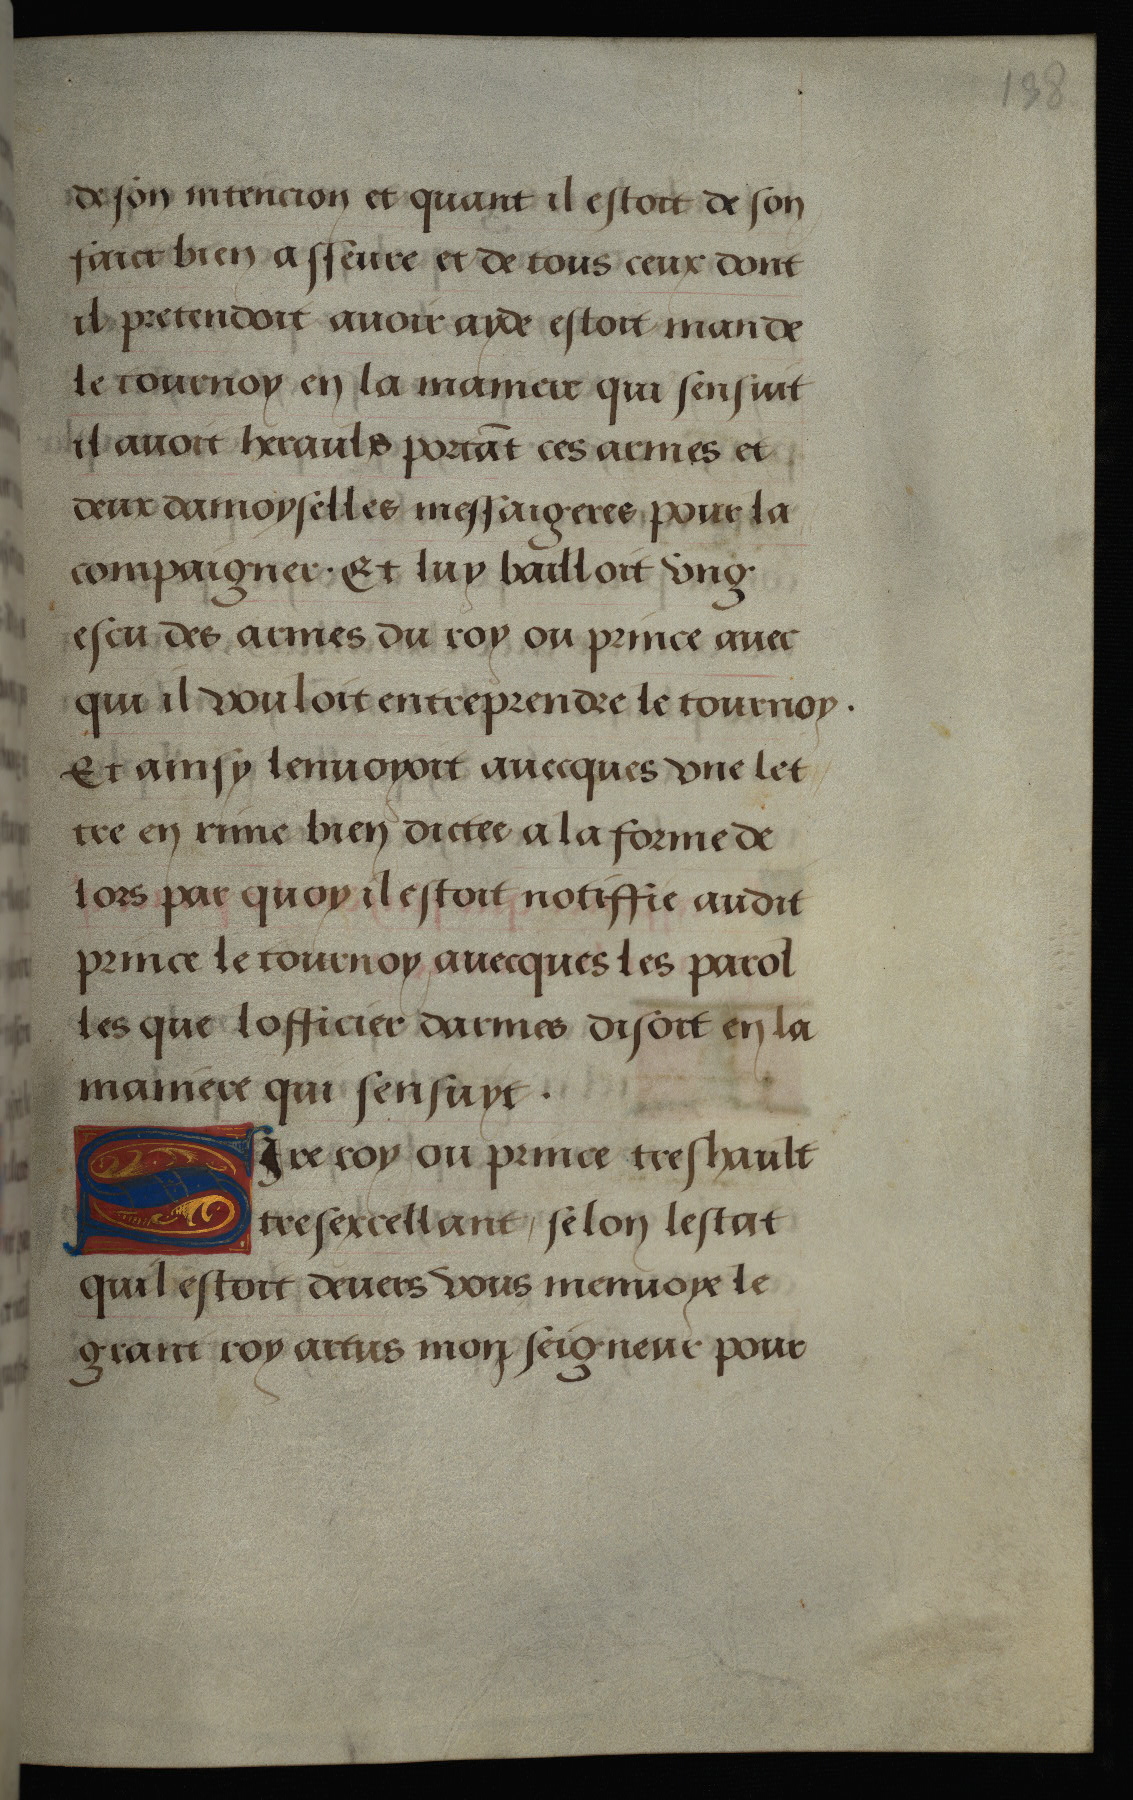 138
de son intencion et quant il estoit de son
faict bien asseure et de tous ceux dont
il pretendoit avoir ayde estoit mande
le tournoy en la maniere qui sensuit
il avoit heraulx portāt ces armes et
deux damoyselles messaigeres pour la
compaigner. Et luy bailloit vng
escu des armes du roy ou prince avec
qui il vouloit entreprendre le tournoy.
Et ainsy lenvoyoit avecques vne let
tre en rime bien dictee a la forme de
lors par quoy il estoit notiffie audit
prince le tournoy avecques les parol
les que lofficier darmes disoit en la
maniere qui sensuyt.
Sire roy ou prince treshault
tresexcellant / selon lestat
quil estoit devers vous menvoye le
grant roy artus mon seigneur pour